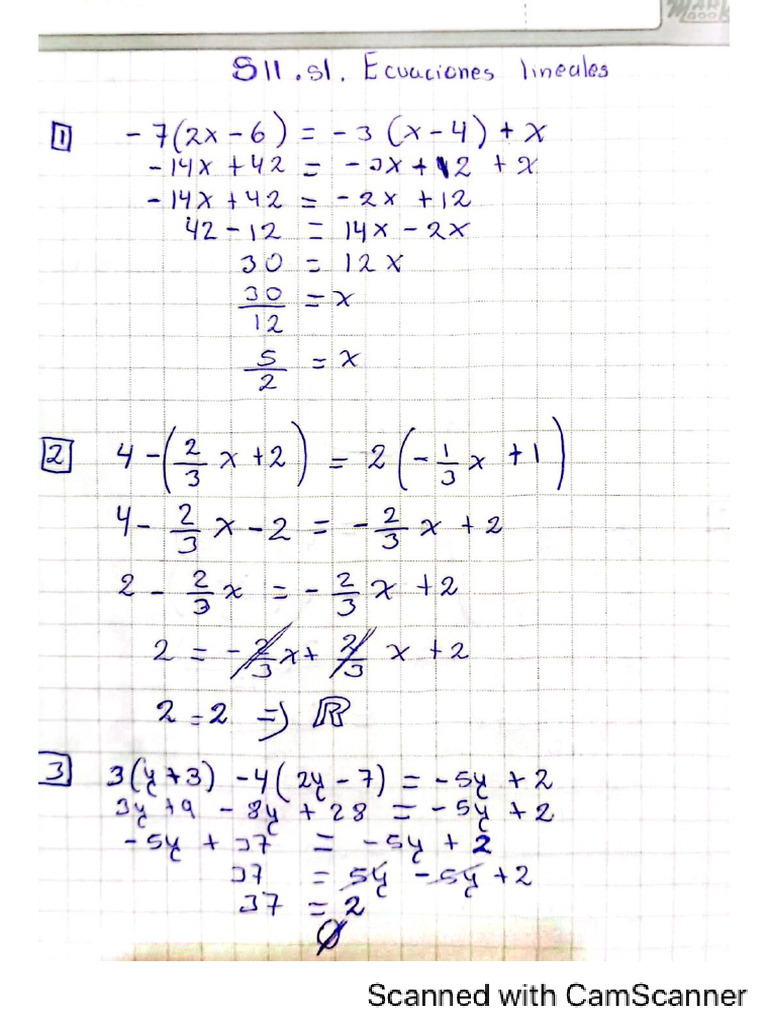 MARK
BOOK
S11.s1. Ecuaciones lineales
1 -7(2x-6) = -3(x-4)+x
-14x+42 = -3x+12+x
-14x+42 = -2x+12
42-12 = 14x-2x
30 = 12x
30/12 = x
5/2 = x
2 4-(2/3 x+2) = 2(-1/3 x+1)
4-2/3 x-2 = -2/3 x+2
2-2/3 x = -2/3 x+2
2 = -2/3 x+2/3 x+2
2=2 => ℝ
3 3(y+3)-4(2y-7) = -5y+2
3y+9-8y+28 = -5y+2
-5y+37 = -5y+2
37 = 5y-5y+2
37 = 2
Ø
Scanned with CamScanner